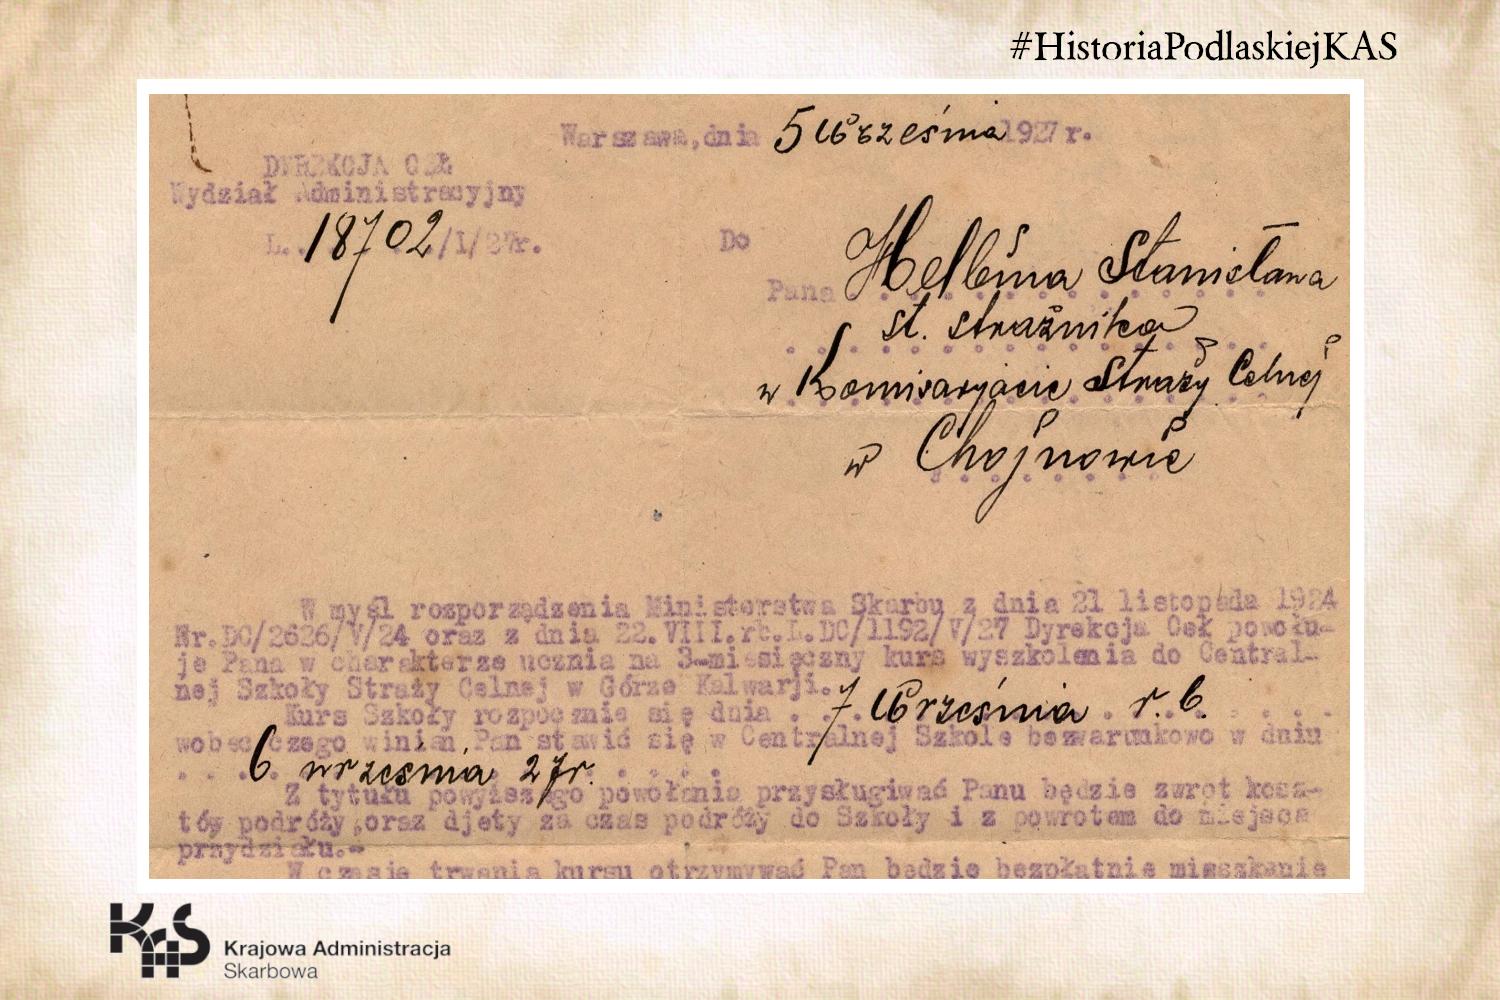 #HistoriaPodlaskiejKAS
Warszawa, dnia 5 Września 1927 r.
DYREKCJA CEŁ
Wydział Administracyjny
L. 18702/I/27r.
Do
Pana Helbina Stanisława
st. strażnika
w Komisarjacie Straży Celnej
w Chojnowie
W myśl rozporządzenia Ministerstwa Skarbu z dnia 21 listopada 1924
Nr.DC/2626/V/24 oraz z dnia 22.VIII.rb.L.DC/1192/V/27 Dyrekcja Ceł powołu-
je Pana w charakterze ucznia na 3-miesięczny kurs wyszkolenia do Central-
nej Szkoły Straży Celnej w Górze Kalwarji.
Kurs Szkoły rozpocznie się dnia 7 Września r. b.
wobec czego winien Pan stawić się w Centralnej Szkole bezwarunkowo w dniu
6 września 27r.
Z tytułu powyższego powołania przysługiwać Panu będzie zwrot kosz-
tów podróży, oraz djety za czas podróży do Szkoły i z powrotem do miejsca
przydziału.-
W czasie trwania kursu otrzymywać Pan będzie bezpłatnie mieszkanie
KAS
Krajowa Administracja
Skarbowa